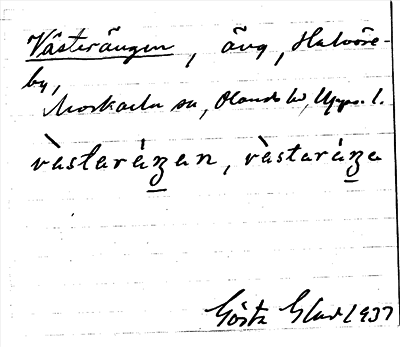 Västerängen, äng, Halvöre-
by,
Morkarla sn, Olands hd, Upps. l.
vàstaráʒan, vàstaráʒa
Gösta Glad 1937